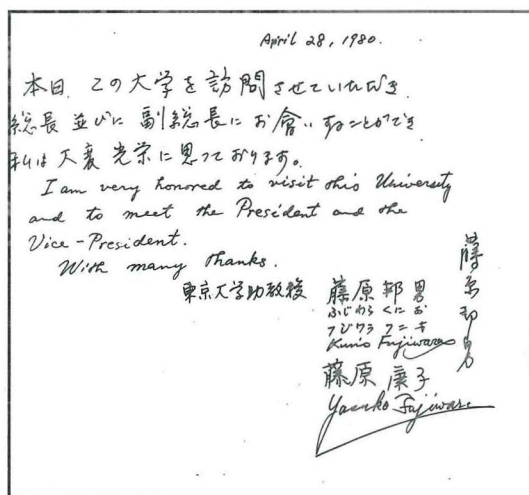 April 28, 1980.
本日、この大学を訪問させていただき
総長並びに副総長にお會いすることができ
私は大変光栄に思っております。
I am very honored to visit this University
and to meet the President and the
Vice-President.
With many thanks.
東京大学助教授 藤原邦男
ふじわら くにお
フジワラ クニオ
Kunio Fujiwara
藤原邦男
藤原康子
Yasuko Fujiwara